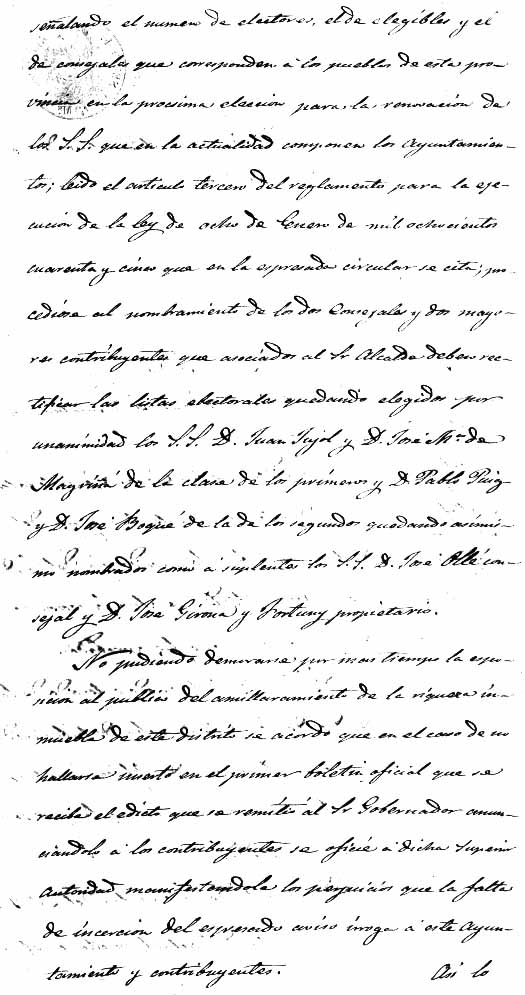 señalando el numero de electores, el de elegibles y el
de consejales que corresponden à los pueblos de esta pro-
vincia en la procsima eleccion para la renovacion de
los S.S. que en la actualidad componen los Ayuntamien-
tos; leido el articulo tercero del reglamento para la eje-
cucion de la ley de ocho de Enero de mil ochocientos
cuarenta y cinco que en la espresada circular se cita; pro-
cediose al nombramiento de los dos Consejales y dos mayo-
res contribuyentes que asociados al Sr Alcalde deben rec-
tificar las listas electorales quedando elegidos por
unanimidad los S.S. D. Juan Pujol y D. José Mª de
Magriñá de la clase de los primeros y D. Pablo Puig
y D. José Boqué de la de los segundos quedando asimis-
mo nombrados como à suplentes los S.S. D. José Ollé con-
sejal y D. José Girona y Fortuny propietario.
No pudiendo demorarse por mas tiempo la espo-
sicion al público del amillaramiento de la riqueza in-
mueble de este distrito se acordó que en el caso de no
hallarse inserto en el primer boletin oficial que se
reciba el edicto que se remitió al Sr Gobernador anun-
ciandolo à los contribuyentes se oficie à dicha Superior
Autoridad manifestandola los perjuicios que la falta
de incercion del espresado aviso irroga à este Ayun-
tamiento y contribuyentes. Asi lo